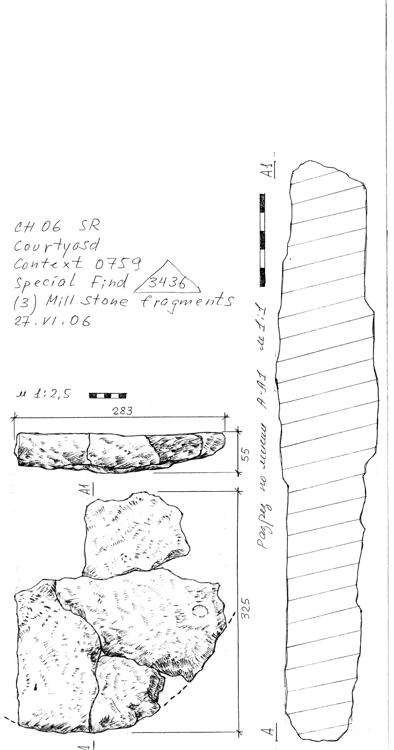 CH 06 SR
Courtyard
Context 0759
Special Find 3436
(3) Mill Stone fragments
27.VI.06
м 1:2,5
283
55
A1
325
A
A1
Разрез по линии А-А1 м 1:1
A